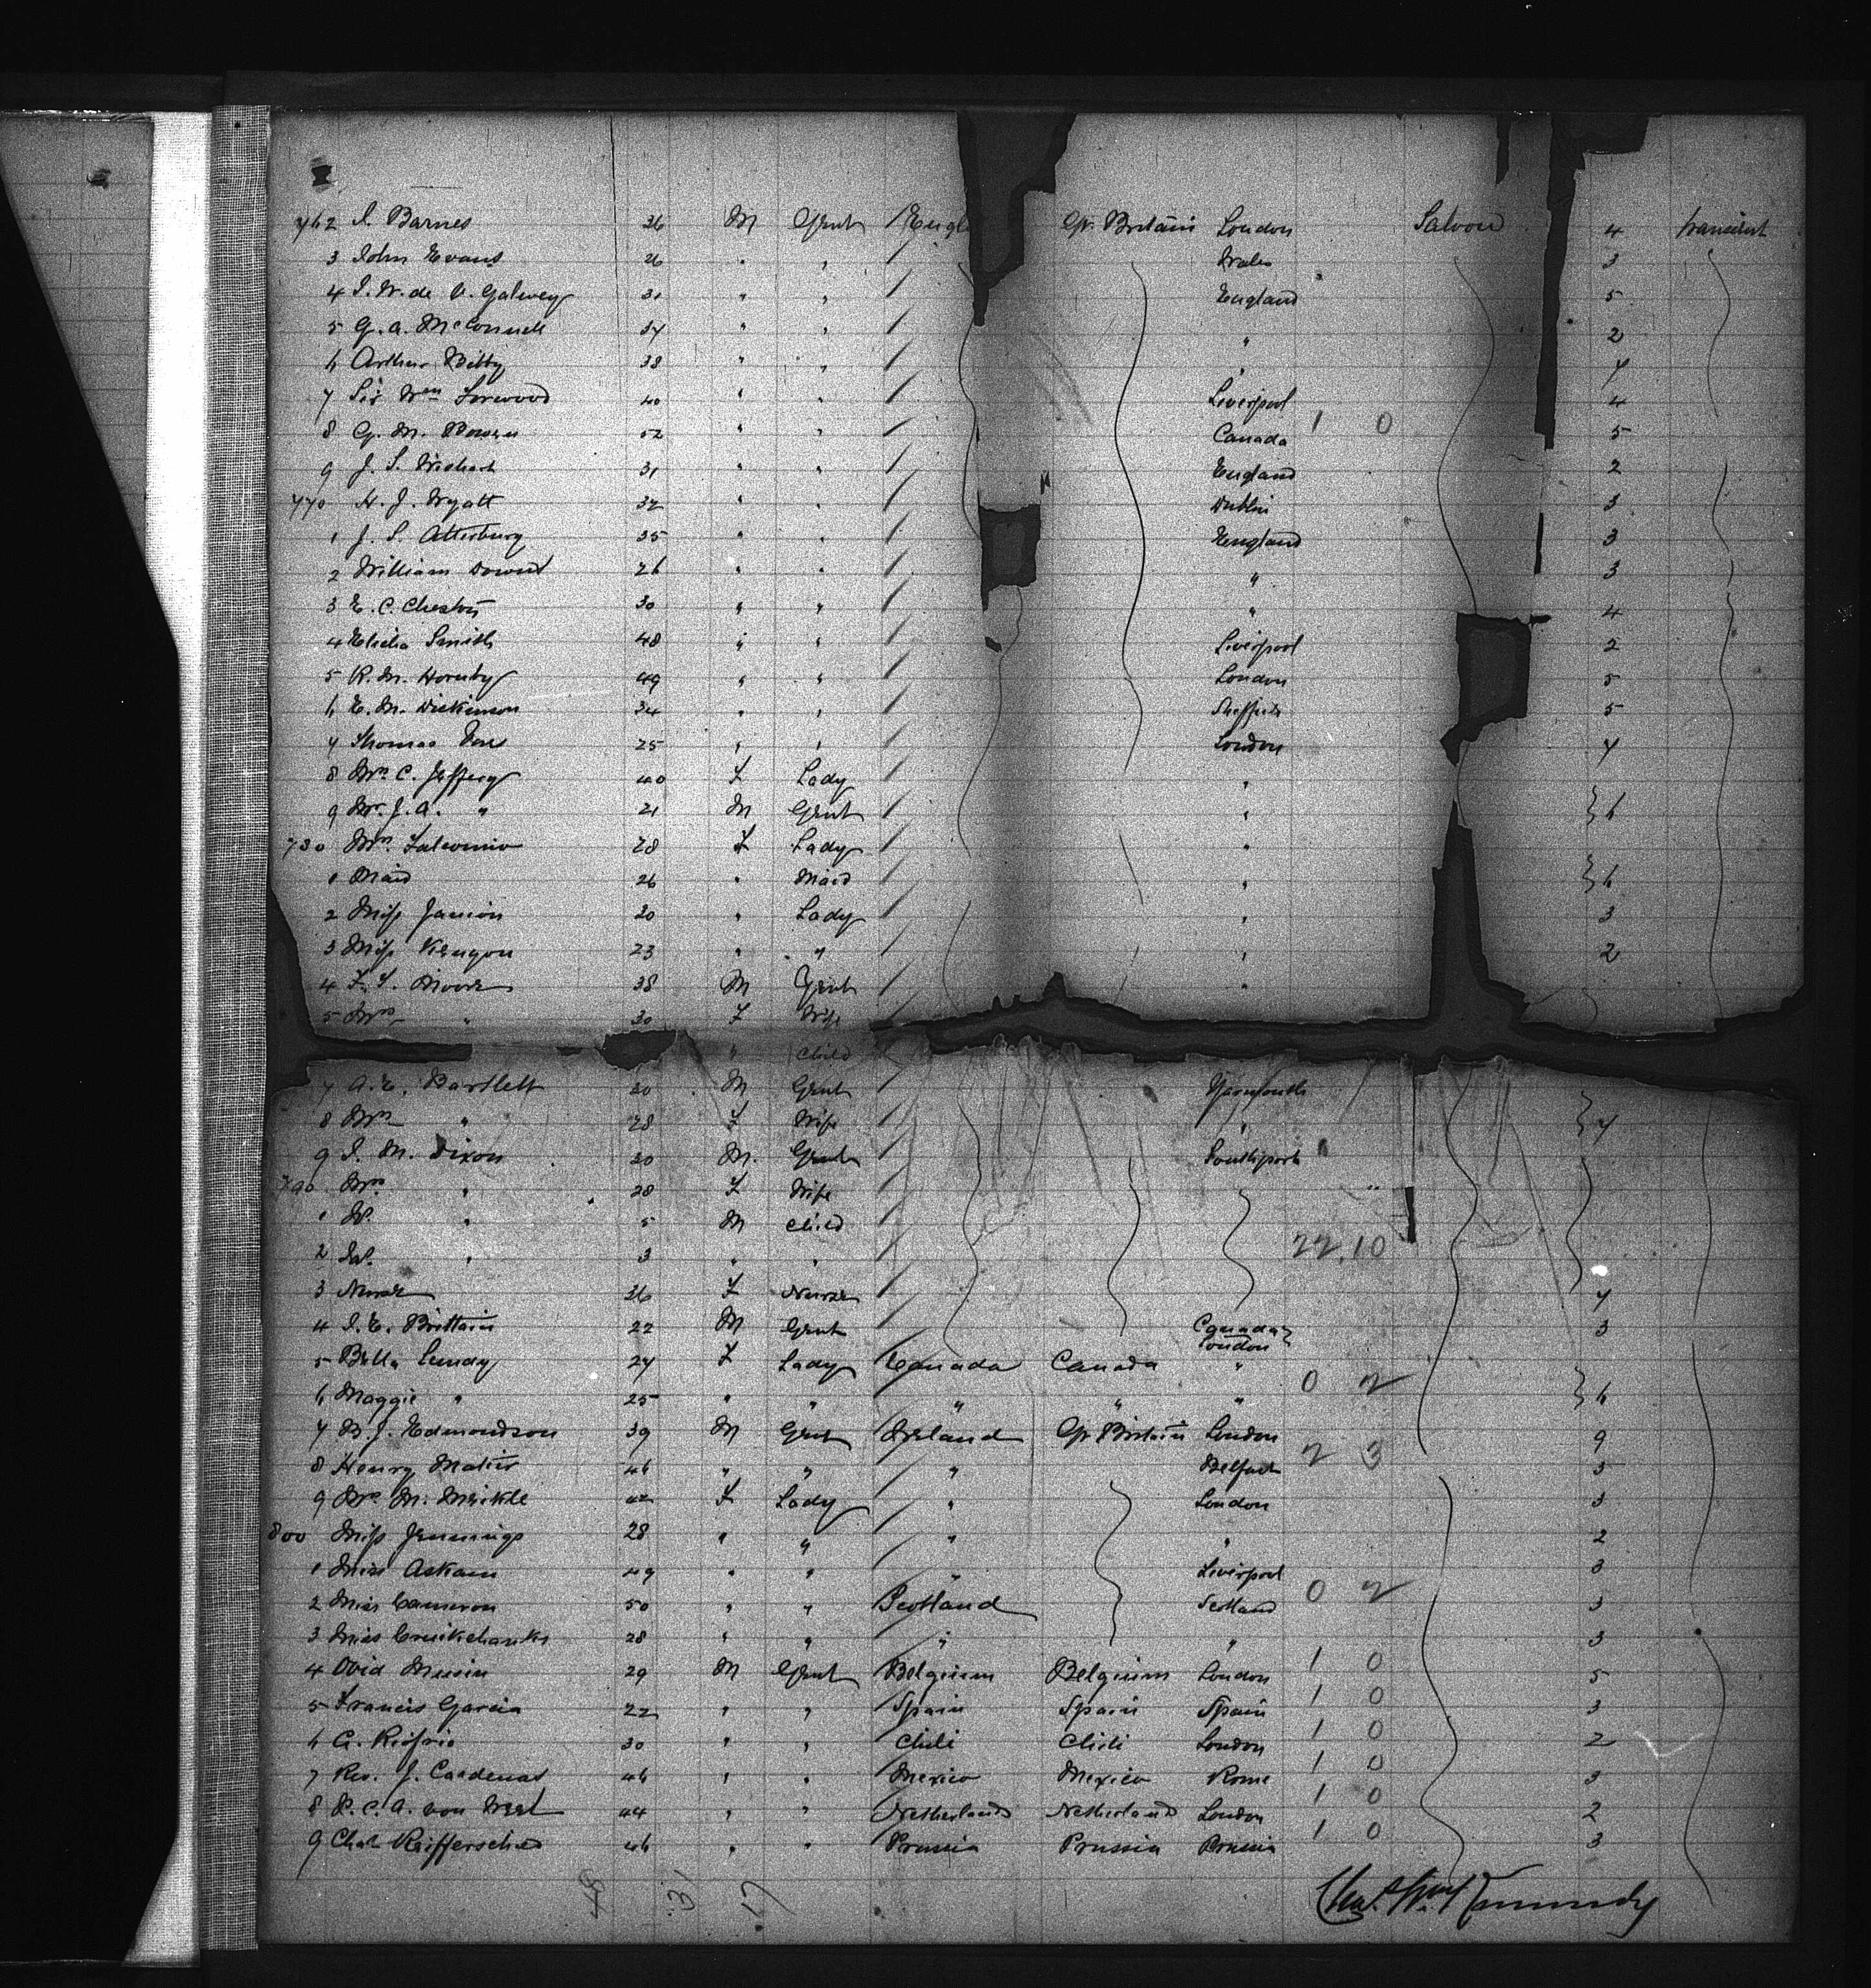 762 J. Barnes 36 M Gent Engl Gt. Britain London Saloon 4 transient
3 John Evans 26 " " Wales 3
4 J. W. de V. Galwey 31 " " England 5
5 G. A. McConnell 37 " " " 2
6 Arthur 38 " " " 7
7 Sir Wm Forwood 40 " " Liverpool 4
8 G. M. Bowen 52 " " Canada 1 0 5
9 J. S. 31 " " England 2
770 H. J. Wyatt 32 " " Dublin 3
1 J. S. Atterbury 35 " " England 3
2 William 26 " " " 3
3 E. C. Cheston 30 " " " 4
4 Elisha Smith 48 " " Liverpool 2
5 R. M. Hornby 49 " " London 5
6 E. M. Dickinson 34 " " Sheffield 5
7 Thomas 25 " " London 7
8 Mrs C. Jeffery 40 F Lady "
9 Mr. J. A. " 21 M Gent " } 6
780 Mrs. 28 F Lady "
1 Maid 26 " Maid " } 6
2 Miss Janion 20 " Lady " 3
3 Miss Kenyon 23 " " " 2
4 F. S. Moore 38 M Gent "
5 Mrs " 30 F Wife
" Child
7 A. E. Bartlett 30 M Gent Yarmouth
8 Mrs " 28 F Wife " } 7
9 J. M. Dixon 30 M. Gent Southport
790 Mrs " 28 F Wife
1 W. " 5 M Child
2 " 3 " " 22 10
3 Nurse 26 F Nurse 7
4 J. E. Brittain 22 M Gent Canada London 3
5 Bella Lundy 27 F Lady Canada Canada "
6 Maggie " 25 " " " " " 0 2 } 6
7 B. J. Edmondson 39 M Gent Ireland Gt Britain London 9
8 Henry Matier 46 " " " Belfast 2 3 3
9 Mrs M. Meikle 42 F Lady " London 3
800 Miss Jennings 28 " " " " 2
1 Miss Askam 49 " " " Liverpool 3
2 Miss Cameron 50 " " Scotland Scotland 0 2 3
3 Miss Cruikshanks 28 " " " " 3
4 Ovid Musin 29 M Gent Belgium Belgium London 1 0 5
5 Francis Garcia 22 " " Spain Spain Spain 1 0 3
6 G. Riofrio 30 " " Chili Chili London 1 0 2
7 Rev. J. Cardenas 46 " " Mexico Mexico Rome 1 0 3
8 P. C. A. von 44 " " Netherlands Netherland London 1 0 2
9 Chas Reifferscheid 46 " " Prussia Prussia Prussia 1 0 3
Chas. Wm Kennedy